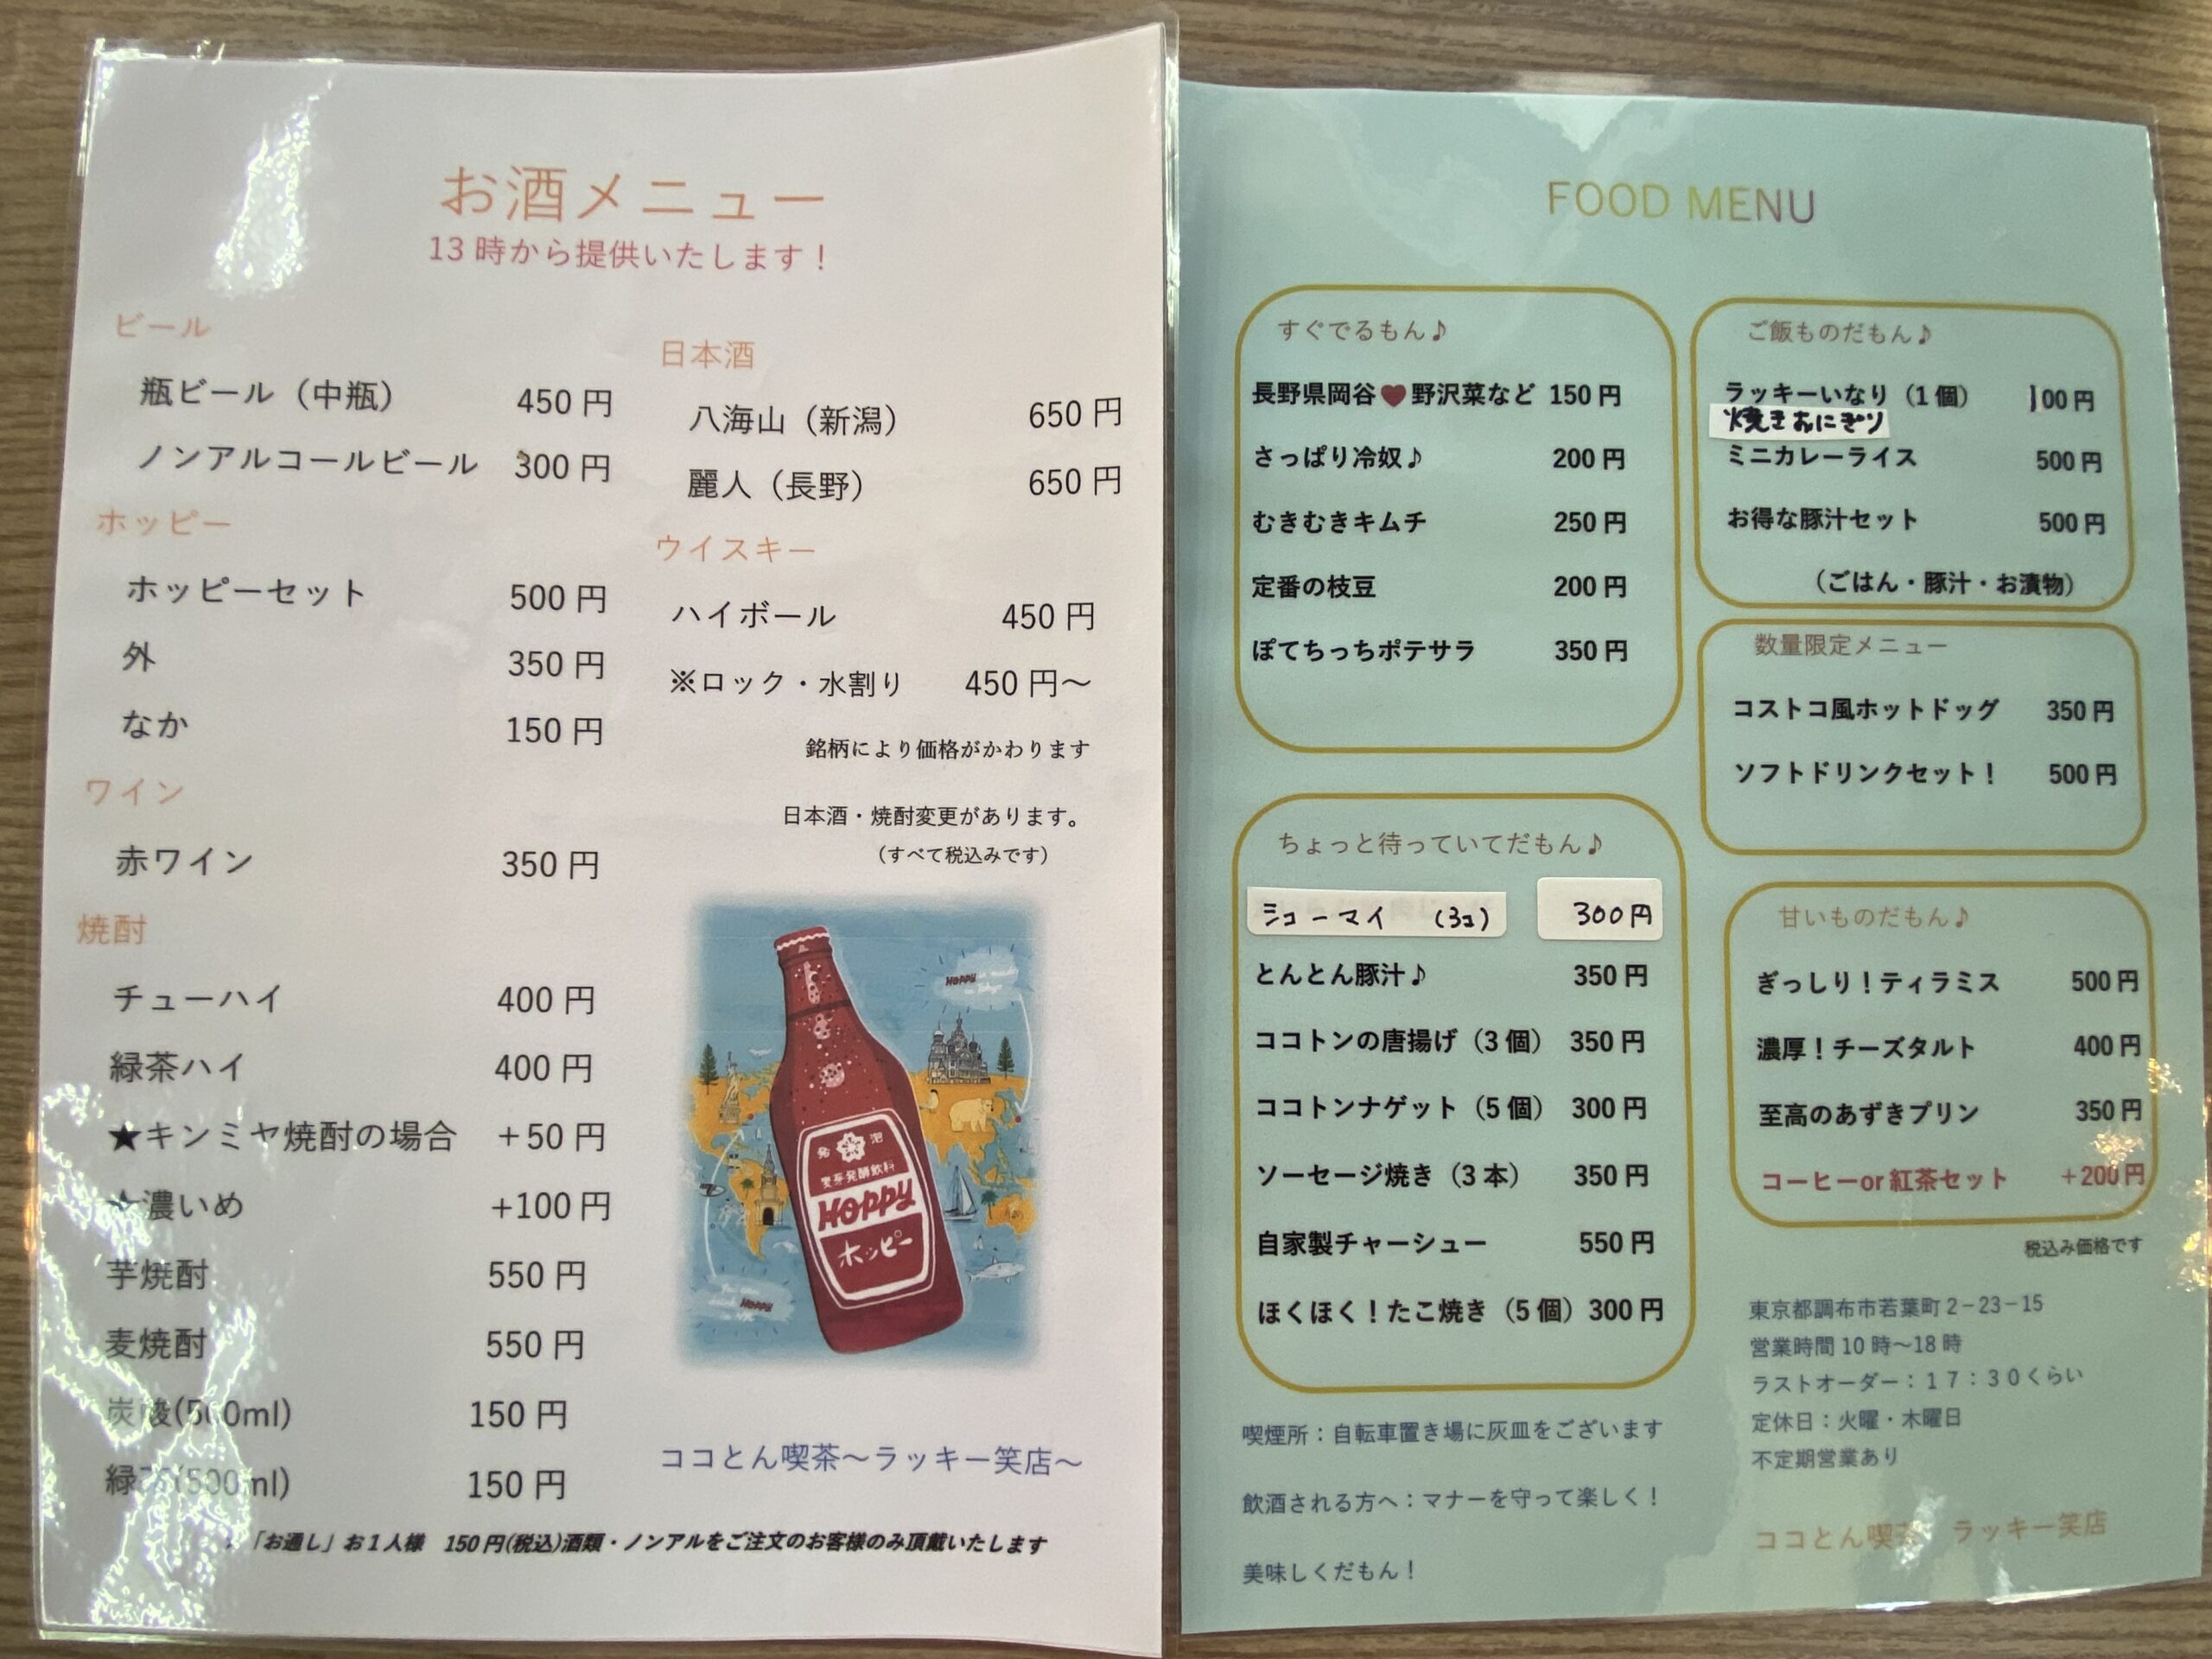 お酒メニュー
13時から提供いたします！
ビール
瓶ビール（中瓶） 450円
ノンアルコールビール 300円
ホッピー
ホッピーセット 500円
外 350円
なか 150円
ワイン
赤ワイン 350円
焼酎
チューハイ 400円
緑茶ハイ 400円
★キンミヤ焼酎の場合 +50円
濃いめ +100円
芋焼酎 550円
麦焼酎 550円
炭酸(500ml) 150円
緑茶(500ml) 150円
日本酒
八海山（新潟） 650円
麗人（長野） 650円
ウイスキー
ハイボール 450円
※ロック・水割り 450円～
銘柄により価格がかわります
日本酒・焼酎変更があります。
（すべて税込みです）
HOPPY
発 泡
麦芽発酵飲料
HOPPY
ホッピー
HOPPY
ココとん喫茶～ラッキー笑店～
「お通し」お1人様 150円(税込)酒類・ノンアルをご注文のお客様のみ頂戴いたします
FOOD MENU
すぐでるもん♪
長野県岡谷♥野沢菜など 150円
さっぱり冷奴♪ 200円
むきむきキムチ 250円
定番の枝豆 200円
ぽてちっちポテサラ 350円
ちょっと待っていてだもん♪
シューマイ （3コ） 300円
とんとん豚汁♪ 350円
ココトンの唐揚げ（3個） 350円
ココトンナゲット（5個） 300円
ソーセージ焼き（3本） 350円
自家製チャーシュー 550円
ほくほく！たこ焼き（5個） 300円
喫煙所：自転車置き場に灰皿をございます
飲酒される方へ：マナーを守って楽しく！
美味しくだもん！
ご飯ものだもん♪
ラッキーいなり（1個） 100円
焼きおにぎり
ミニカレーライス 500円
お得な豚汁セット 500円
（ごはん・豚汁・お漬物）
数量限定メニュー
コストコ風ホットドッグ 350円
ソフトドリンクセット！ 500円
甘いものだもん♪
ぎっしり！ティラミス 500円
濃厚！チーズタルト 400円
至高のあずきプリン 350円
コーヒーor紅茶セット +200円
税込み価格です
東京都調布市若葉町2－23－15
営業時間10時～18時
ラストオーダー：17：30くらい
定休日：火曜・木曜日
不定期営業あり
ココとん喫茶 ラッキー笑店